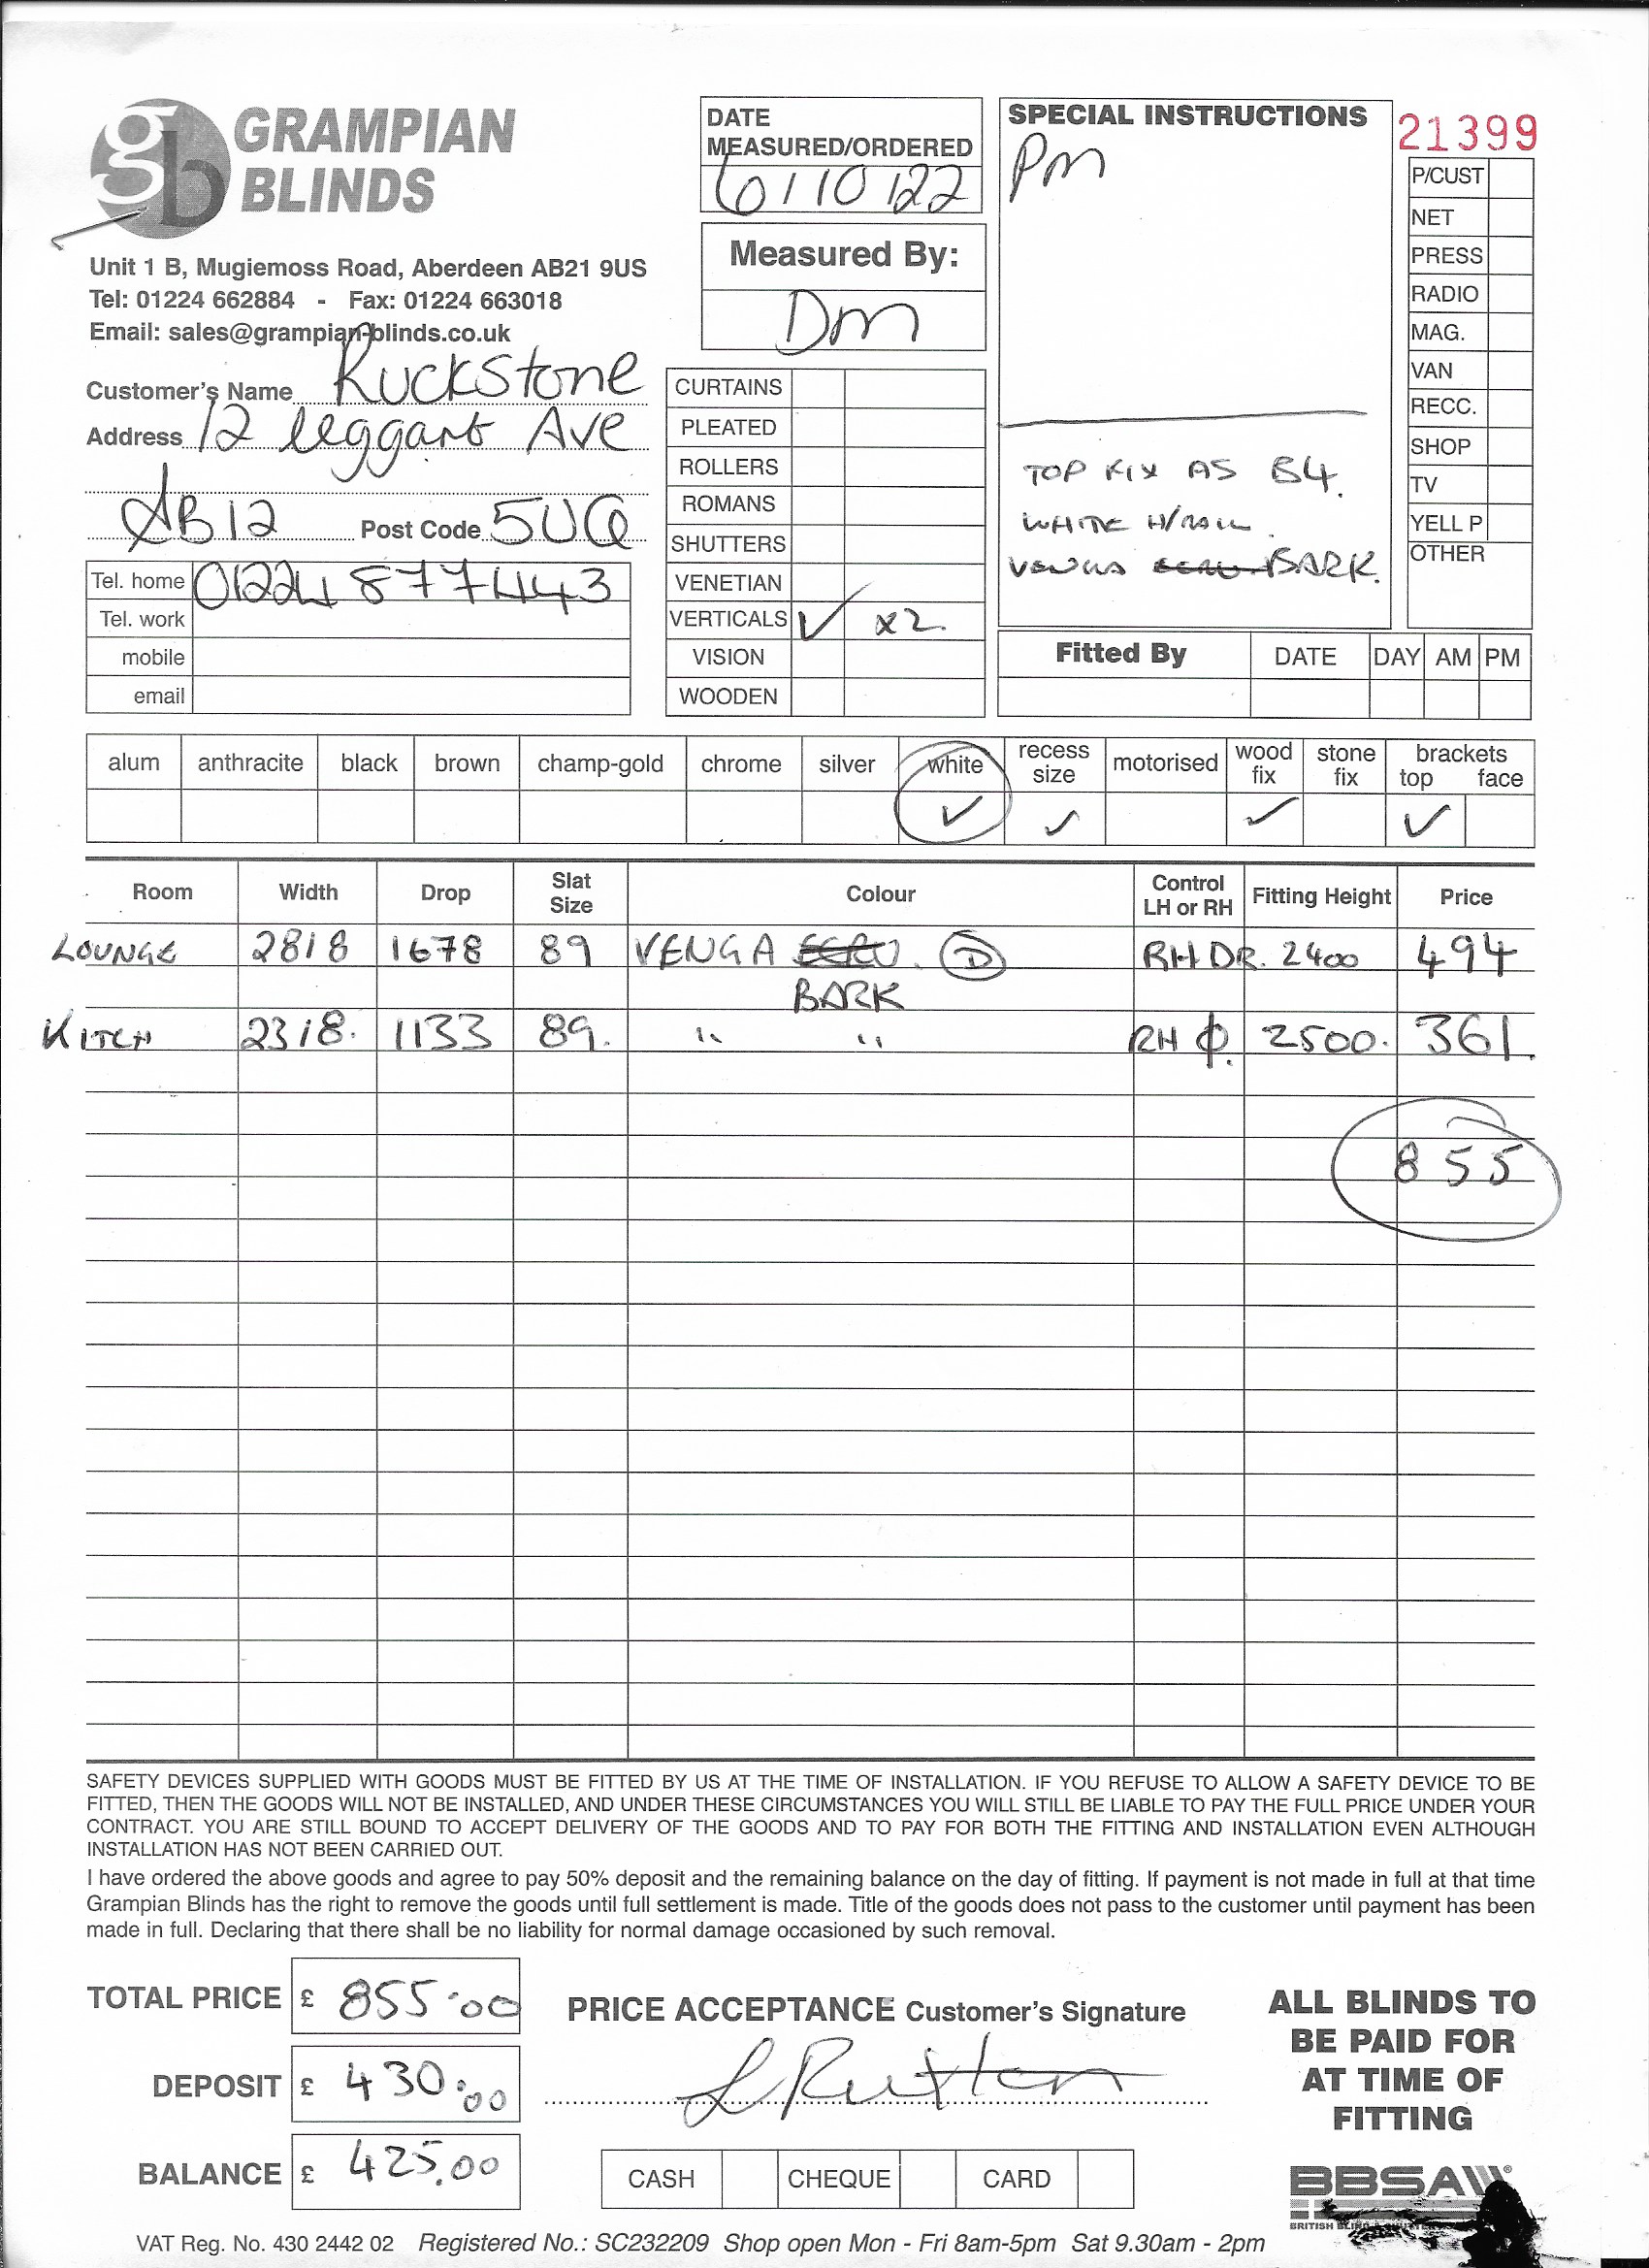 gb GRAMPIAN
BLINDS
Unit 1 B, Mugiemoss Road, Aberdeen AB21 9US
Tel: 01224 662884 - Fax: 01224 663018
Email: sales@grampian-blinds.co.uk
Customer's Name Ruckstone
Address 12 Leggart Ave
AB12 Post Code 5UQ
Tel. home 01224 877443
Tel. work
mobile
email
DATE
MEASURED/ORDERED
6/10/22
Measured By:
Dm
CURTAINS
PLEATED
ROLLERS
ROMANS
SHUTTERS
VENETIAN
VERTICALS ✓ x2
VISION
WOODEN
SPECIAL INSTRUCTIONS
Pm
TOP FIX AS B4.
WHITE H/RAIL
BARK.
21399
P/CUST
NET
PRESS
RADIO
MAG.
VAN
RECC.
SHOP
TV
YELL P
OTHER
Fitted By DATE DAY AM PM
alum anthracite black brown champ-gold chrome silver white recess size motorised wood fix stone fix brackets top face
✓ ✓ ✓ ✓
Room Width Drop Slat Size Colour Control LH or RH Fitting Height Price
LOUNGE 2818 1678 89 VENGA ECRU. D RH DR. 2400 494
BARK
KITCH 2318. 1133 89. " " RH 2500. 361.
855
SAFETY DEVICES SUPPLIED WITH GOODS MUST BE FITTED BY US AT THE TIME OF INSTALLATION. IF YOU REFUSE TO ALLOW A SAFETY DEVICE TO BE
FITTED, THEN THE GOODS WILL NOT BE INSTALLED, AND UNDER THESE CIRCUMSTANCES YOU WILL STILL BE LIABLE TO PAY THE FULL PRICE UNDER YOUR
CONTRACT. YOU ARE STILL BOUND TO ACCEPT DELIVERY OF THE GOODS AND TO PAY FOR BOTH THE FITTING AND INSTALLATION EVEN ALTHOUGH
INSTALLATION HAS NOT BEEN CARRIED OUT.
I have ordered the above goods and agree to pay 50% deposit and the remaining balance on the day of fitting. If payment is not made in full at that time
Grampian Blinds has the right to remove the goods until full settlement is made. Title of the goods does not pass to the customer until payment has been
made in full. Declaring that there shall be no liability for normal damage occasioned by such removal.
TOTAL PRICE £ 855.00
DEPOSIT £ 430.00
BALANCE £ 425.00
PRICE ACCEPTANCE Customer's Signature
CASH CHEQUE CARD
ALL BLINDS TO
BE PAID FOR
AT TIME OF
FITTING
BBSA
BRITISH
VAT Reg. No. 430 2442 02 Registered No.: SC232209 Shop open Mon - Fri 8am-5pm Sat 9.30am - 2pm